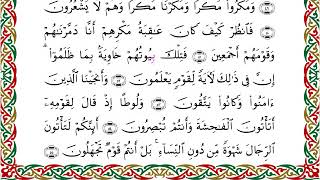 وَمَكَرُوا۟ مَكْرًا وَمَكَرْنَا مَكْرًا وَهُمْ لَا يَشْعُرُونَ ٥٠
فَٱنظُرْ كَيْفَ كَانَ عَـٰقِبَةُ مَكْرِهِمْ أَنَّا دَمَّرْنَـٰهُمْ
وَقَوْمَهُمْ أَجْمَعِينَ ٥١ فَتِلْكَ بُيُوتُهُمْ خَاوِيَةًۢ بِمَا ظَلَمُوٓا۟ ۗ
إِنَّ فِى ذَٰلِكَ لَـَٔايَةً لِّقَوْمٍ يَعْلَمُونَ ٥٢ وَأَنجَيْنَا ٱلَّذِينَ
ءَامَنُوا۟ وَكَانُوا۟ يَتَّقُونَ ٥٣ وَلُوطًا إِذْ قَالَ لِقَوْمِهِۦٓ
أَتَأْتُونَ ٱلْفَـٰحِشَةَ وَأَنتُمْ تُبْصِرُونَ ٥٤ أَئِنَّكُمْ لَتَأْتُونَ
ٱلرِّجَالَ شَهْوَةً مِّن دُونِ ٱلنِّسَآءِ ۚ بَلْ أَنتُمْ قَوْمٌ تَجْهَلُونَ ٥٥